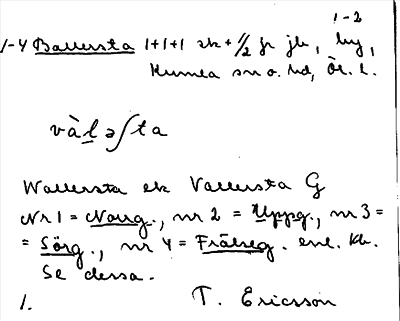 1-2
1-4 Ballersta 1+1+1 sk + 1/2 fr jb, by,
Kumla sn o. hd, Ör. l.
và l ə ʃ ta
Wallersta ek Vallersta G
Nr 1 = Norrg., nr 2 = Uppg., nr 3 =
= Sörg., nr 4 = Frälseg. enl. kb.
Se dessa.
1. T. Ericsson